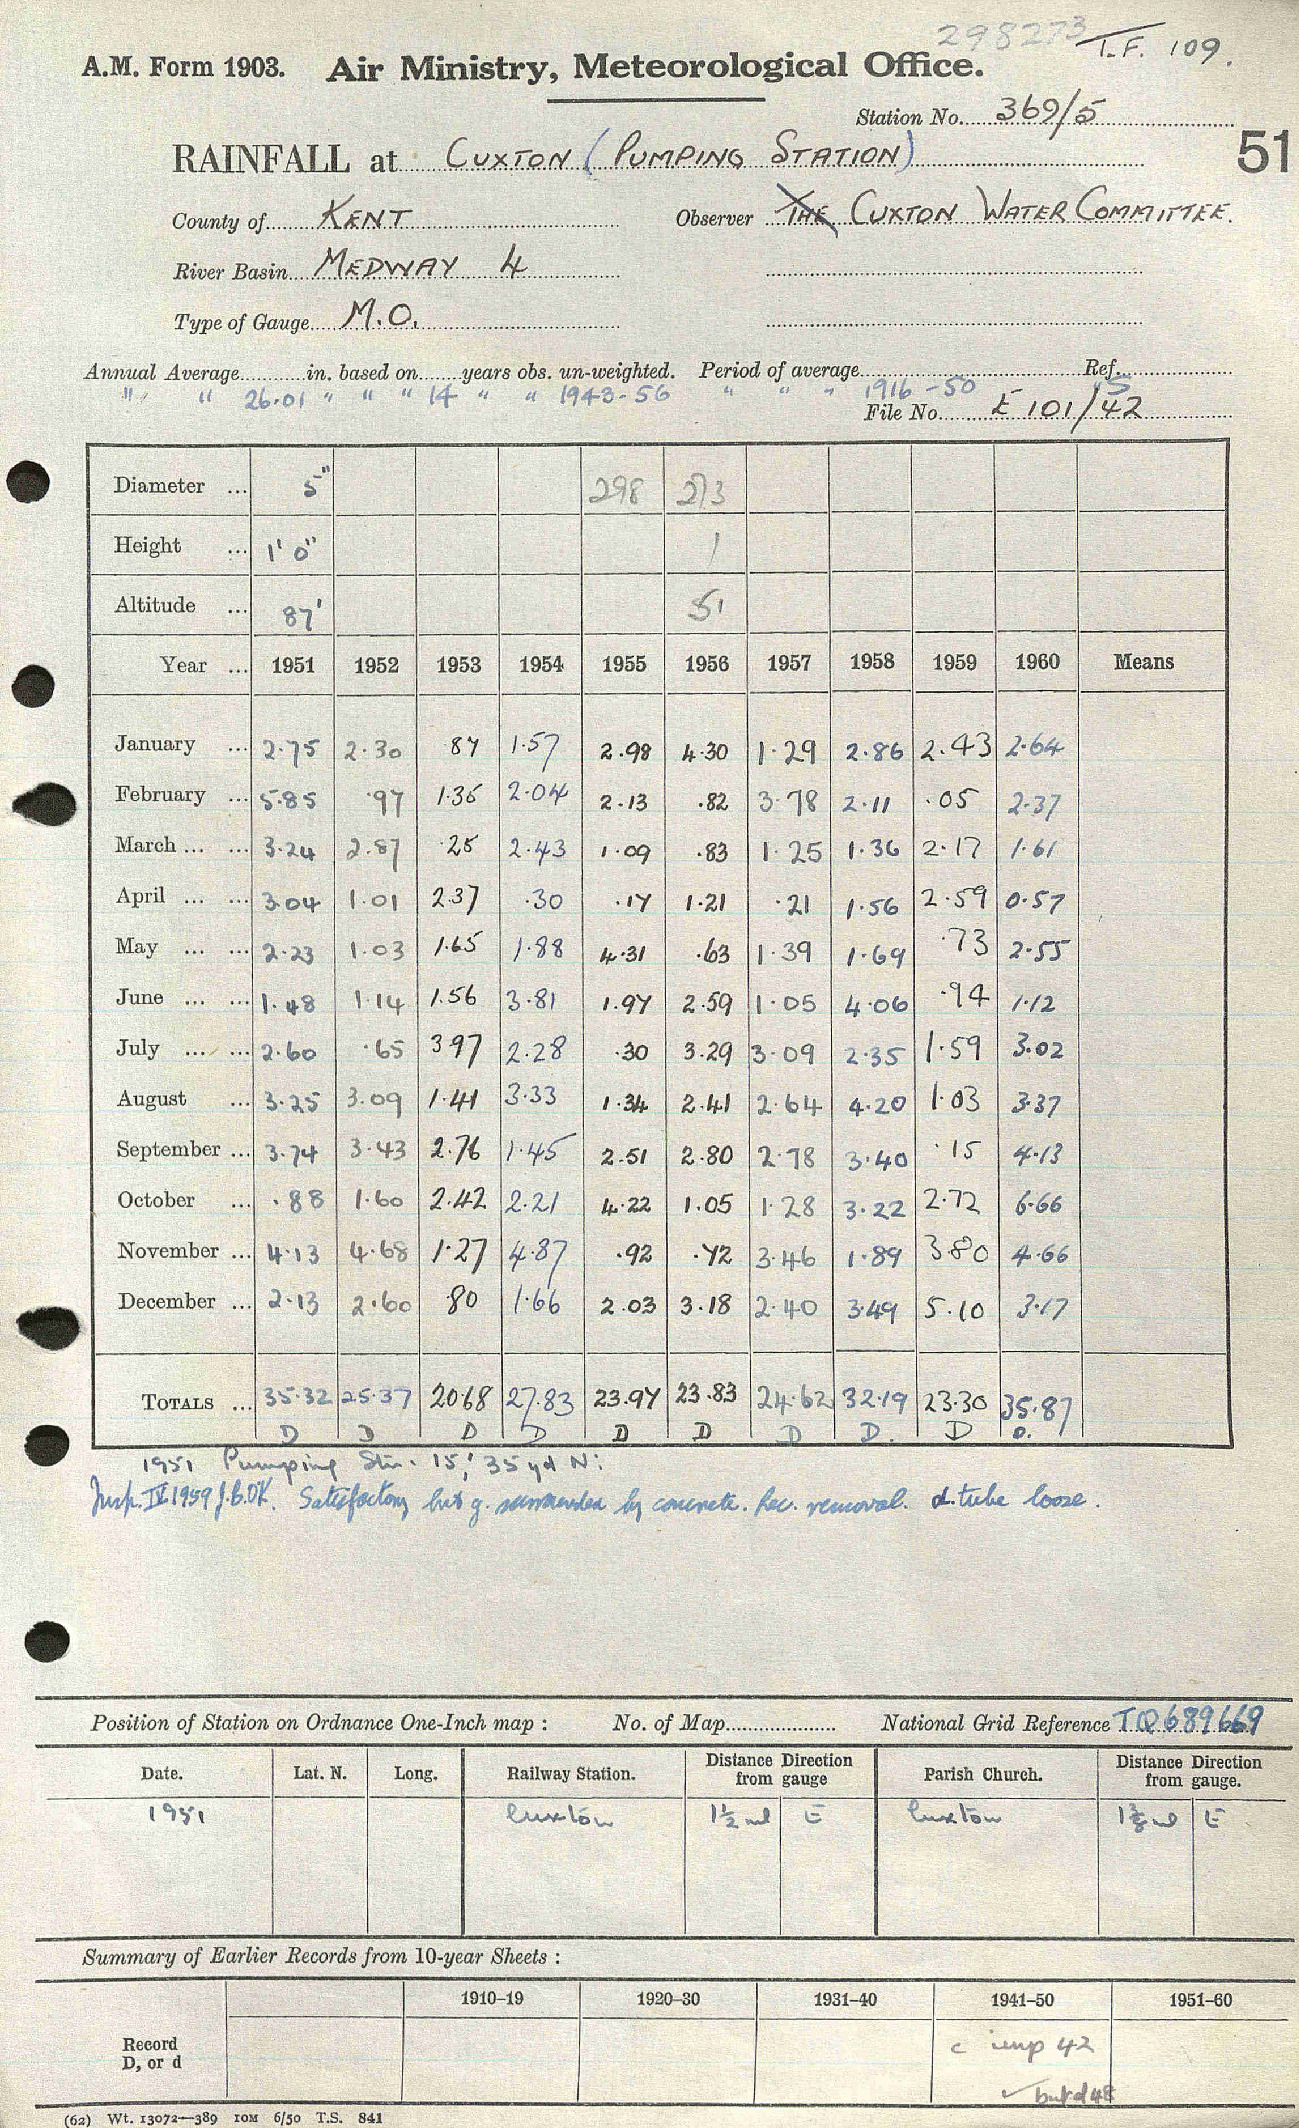 298273 I.F. 109.
A.M. Form 1903. Air Ministry, Meteorological Office.
Station No. 369/5
51
RAINFALL at CUXTON (PUMPING STATION)
County of KENT Observer THE CUXTON WATER COMMITTEE.
River Basin MEDWAY 4
Type of Gauge M.O.
Annual Average in. based on years obs. un-weighted. Period of average Ref.
" " 26.01 " " " 14 " " 1943-56 " " " 1916-50
File No. E 101/42
Diameter ... 5" 298 273
Height ... 1' 0" 1
Altitude ... 87' 51
Year ... 1951 1952 1953 1954 1955 1956 1957 1958 1959 1960 Means
January ... 2.75 2.30 87 1.57 2.98 4.30 1.29 2.86 2.43 2.64
February ... 5.85 .97 1.35 2.04 2.13 .82 3.78 2.11 .05 2.37
March ... ... 3.24 2.87 .25 2.43 1.09 .83 1.25 1.36 2.17 1.61
April ... ... 3.04 1.01 2.37 .30 .17 1.21 .21 1.56 2.59 0.57
May ... ... 2.23 1.03 1.65 1.88 4.31 .63 1.39 1.69 .73 2.55
June ... ... 1.48 1.14 1.56 3.81 1.97 2.59 1.05 4.06 .94 1.12
July ... ... 2.60 .65 3.97 2.28 .30 3.29 3.09 2.35 1.59 3.02
August ... 3.25 3.09 1.41 3.33 1.34 2.41 2.64 4.20 1.03 3.37
September ... 3.74 3.43 2.76 1.45 2.51 2.80 2.78 3.40 .15 4.13
October ... .88 1.60 2.42 2.21 4.22 1.05 1.28 3.22 2.72 6.66
November ... 4.13 4.68 1.27 4.87 .92 .72 3.46 1.89 3.80 4.66
December ... 2.13 2.60 .80 1.66 2.03 3.18 2.40 3.49 5.10 3.17
TOTALS ... 35.32 25.37 20.68 27.83 23.97 23.83 24.62 32.19 23.30 35.87
D D D D D D D D. D D.
1951 Pumping Stn. 15', 35 yd N:
Insp. IX 1959 J.B.OK. Satisfactory but g. surrounded by concrete. Rec. removal. d. tube loose.
Position of Station on Ordnance One-Inch map : No. of Map National Grid Reference TQ689669
Date. Lat. N. Long. Railway Station. Distance Direction from gauge Parish Church. Distance Direction from gauge.
1951 Cuxton 1½ ml E Cuxton 1⅜ ml E
Summary of Earlier Records from 10-year Sheets :
1910–19 1920–30 1931–40 1941–50 1951–60
Record
D, or d
c imp 42
✓ but d 48
(62) Wt. 13072—389 10M 6/50 T.S. 841